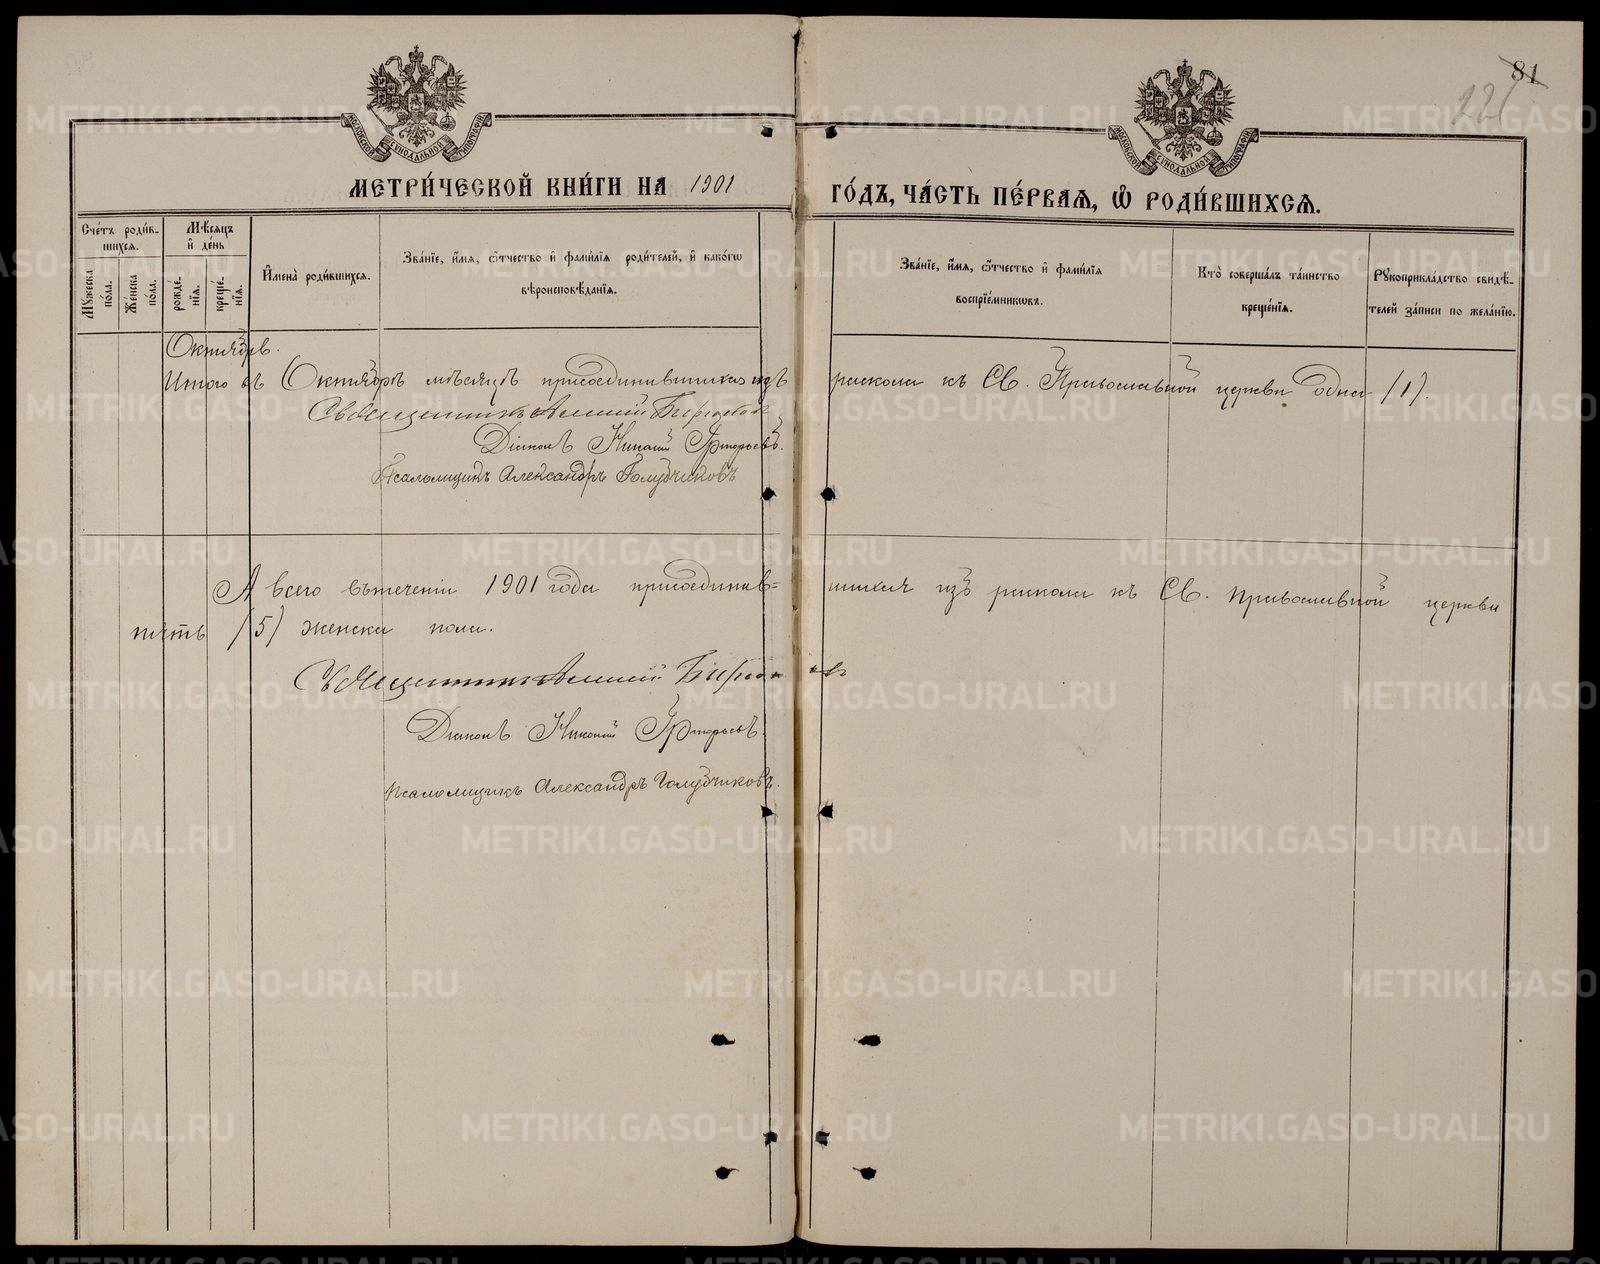 81
221
МОСКОВСКОЙ СѴНОДАЛЬНОЙ ТИПОГРАФІИ
МОСКОВСКОЙ СѴНОДАЛЬНОЙ ТИПОГРАФІИ
МЕТРИ́ЧЕСКОЙ КНИ́ГИ НА 1901 ГО́ДЪ, ЧА́СТЬ ПЕ́РВАѦ, Ѽ РОДИ́ВШИХСѦ.
Сче́тъ роди́в-
шихсѧ.
Мꙋ́жеска по́ла.
Же́нска по́ла.
Мѣ́сѧцъ
и҆ де́нь
рожде́-
нїѧ.
креще́-
нїѧ.
И҆мена̀ роди́вшихсѧ.
Зва́нїе, и҆́мѧ, ѻ҆́тчество и҆ фамі́лїѧ роди́телей, и҆ како́гѡ
вѣроисповѣ́данїѧ.
Зва́нїе, и҆́мѧ, ѻ҆́тчество и҆ фамі́лїѧ
воспрїе́мникѡвъ.
Кто̀ соверша́лъ та́инство
креще́нїѧ.
Рꙋкоприкла́дство свидѣ́-
телей за́писи по жела́нїю.
Октябрь.
Итого въ Октябрѣ мѣсяцѣ присоединившихся изъ раскола къ Св. Православной церкви одна (1).
Священникъ
Діаконъ Николай Григорьевъ.
Псаломщикъ Александръ Голубчиковъ
А всего въ теченіи 1901 года присоединив= шихся изъ раскола къ Св. Православной церкви
пять (5) женска пола.
Священникъ
Діаконъ Николай Григорьевъ.
Псаломщикъ Александръ Голубчиковъ.
METRIKI.GASO-URAL.RU